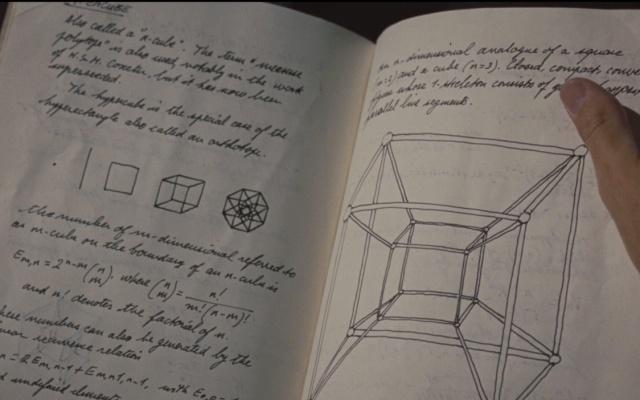 also called a "n-cube". The term "measure
polytope" is also used, notably in the work
of H.S.M. Coxeter, but it has now been
superseded.
The hypercube is the special case of the
hyperrectangle also called an orthotope.
the number of m-dimensional referred to
an m-cube on the boundary of an n-cube is
E m,n = 2^n-m (n m), where (n m) = n! / m!(n-m)!
and n! denotes the factorial of n.
these numbers can also be generated by the
linear recurrence relation
n = 2Em,n-1 + Em-1,n-1, with E0,0
undefined elements
An n-dimensional analogue of a square
(n=2) and a cube (n=3). Closed, compact, convex
whose 1-skeleton consists of
parallel line segments.